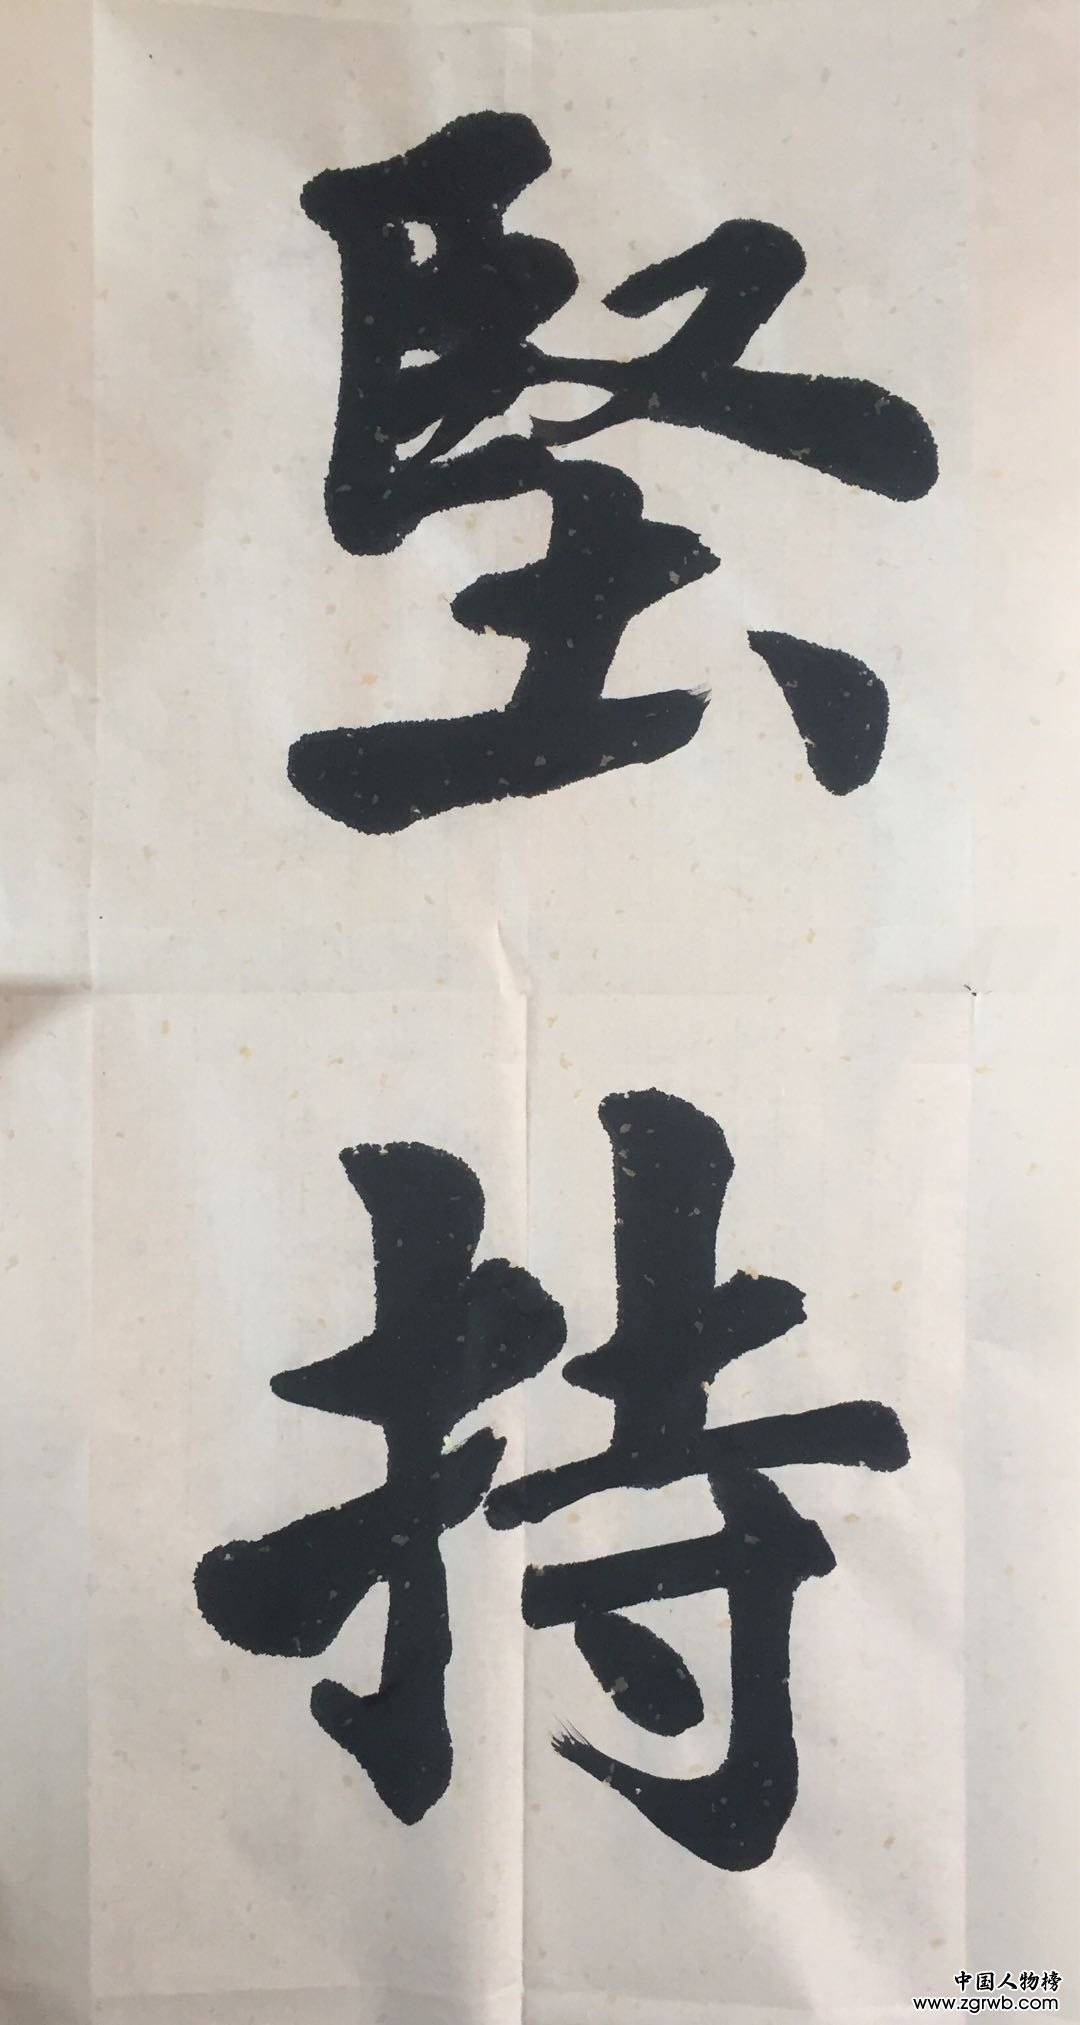 堅
持
中国人物榜
www.zgrwb.com